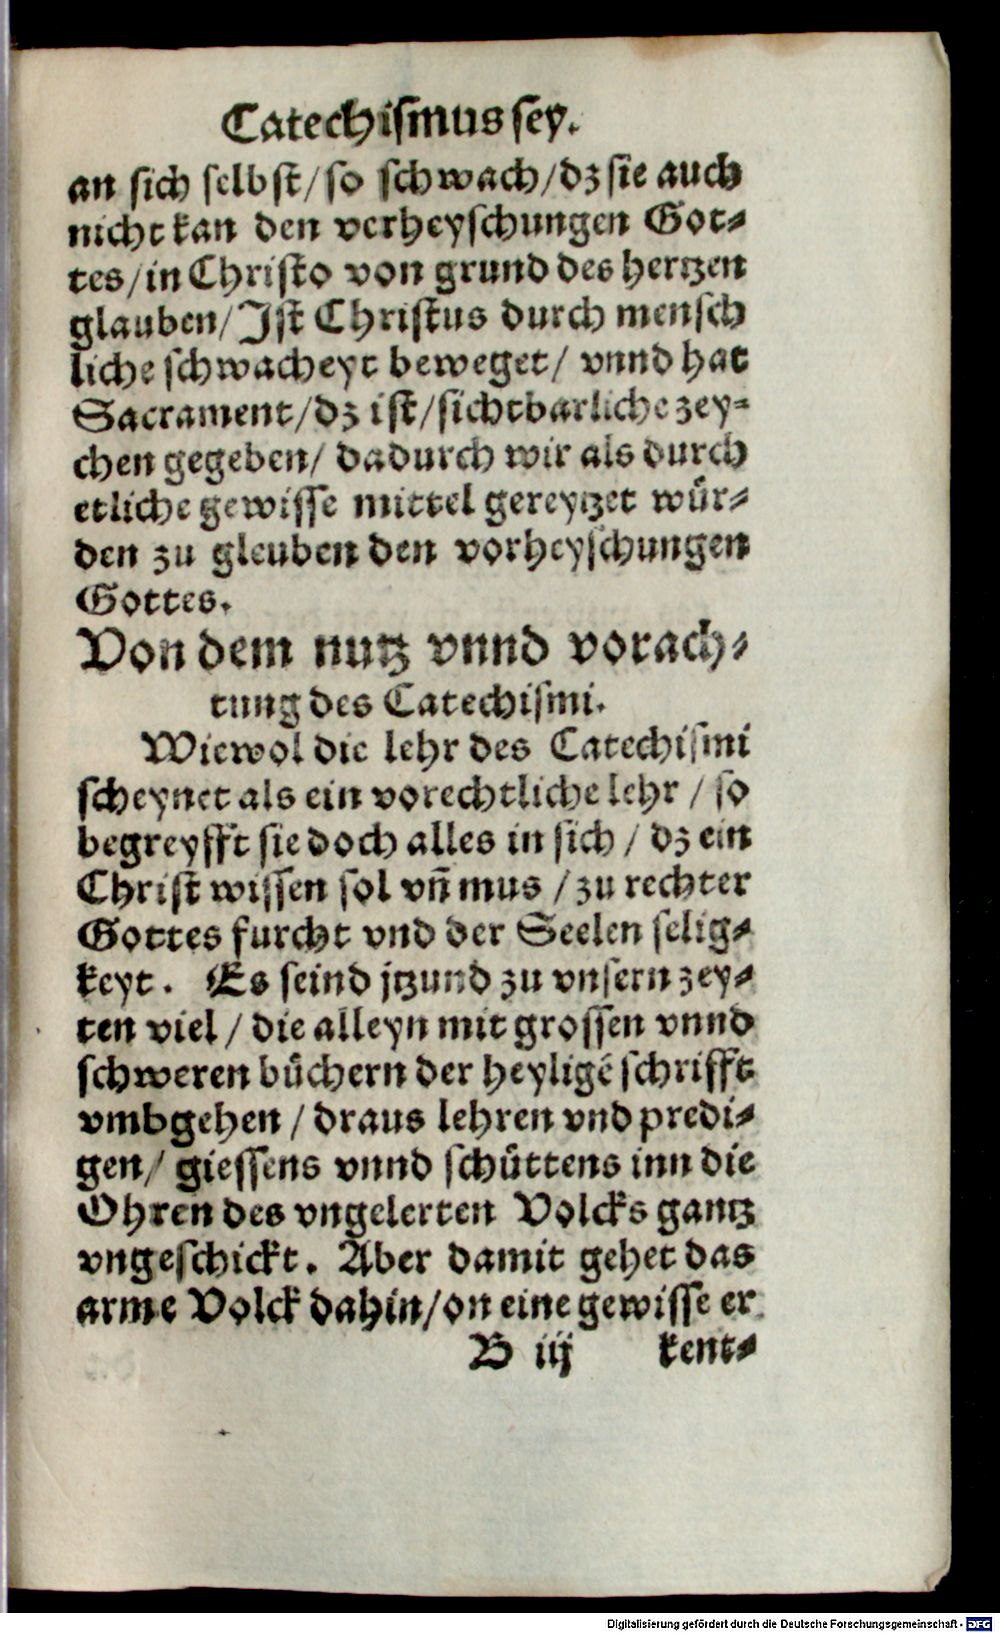 Catechismus sey.
an sich selbst/so schwach/dz sie auch
nicht kan den verheyschungen Got⸗
tes/in Christo von grund des hertzen
glauben/Jst Christus durch mensch
liche schwacheyt beweget/ vnnd hat
Sacrament/dz ist/sichtbarliche zey⸗
chen gegeben/ dadurch wir als durch
etliche gewisse mittel gereytzet wuͤr⸗
den zu gleuben den vorheyschungen
Gottes.
Von dem nutz vnnd vorach⸗
tung des Catechismi.
Wiewol die lehr des Catechismi
scheynet als ein vorechtliche lehr / so
begreyfft sie doch alles in sich / dz ein
Christ wissen sol vn̄ mus / zu rechter
Gottes furcht vnd der Seelen selig⸗
keyt. Es seind jtzund zu vnsern zey⸗
ten viel / die alleyn mit grossen vnnd
schweren buͤchern der heyligē schrifft
vmbgehen / draus lehren vnd predi⸗
gen/ giessens vnnd schuͤttens inn die
Ohren des vngelerten Volcks gantz
vngeschickt. Aber damit gehet das
arme Volck dahin/on eine gewisse er
B iij kent⸗
Digitalisierung gefördert durch die Deutsche Forschungsgemeinschaft - DFG